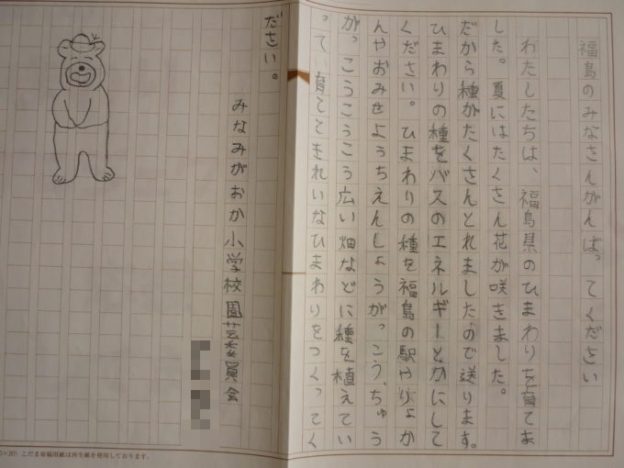 福島のみなさんがんばってください
わたしたちは、福島県のひまわりを育てま
した。夏にはたくさん花が咲きました。
だから種がたくさんとれましたので送ります。
ひまわりの種をバスのエネルギーとかにして
ください。ひまわりの種を福島の駅やりょか
んやおみせようちえんしょうがっこう、ちゅう
がっこうこうこう広い畑などに種を植えてい
って育ててきれいなひまわりをつくってく
ださい。
みなみがおか小学校園芸委員会
こだま原稿用紙は再生紙を使用しております。